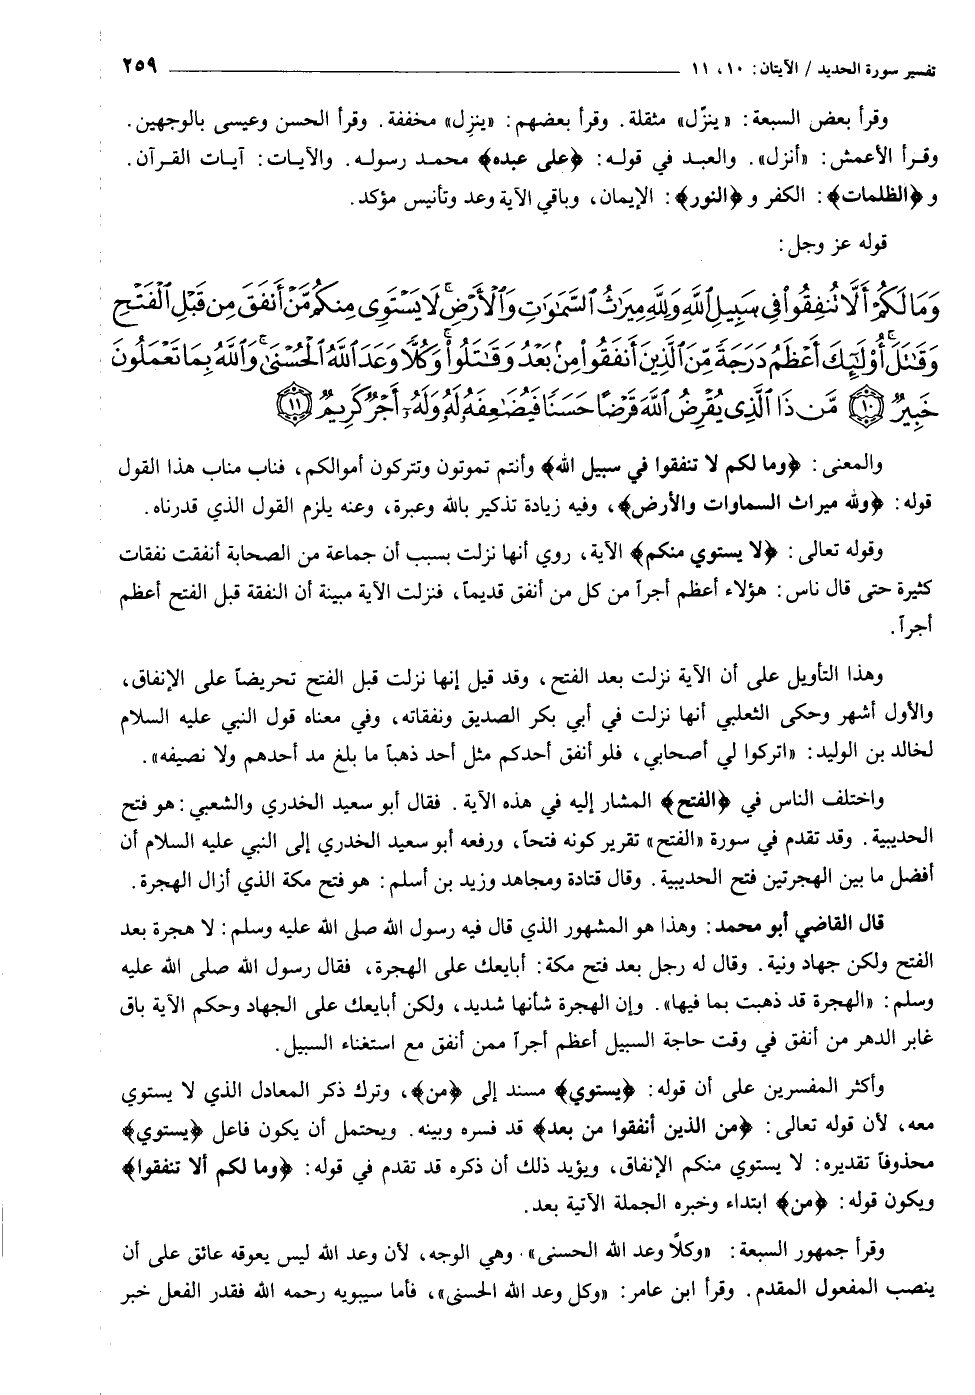 تفسير سورة الحديد / الآيتان: ١٠، ١١ ٢٥٩
وقرأ بعض السبعة: «ينزّل» مثقلة. وقرأ بعضهم: «ينزِل» مخففة. وقرأ الحسن وعيسى بالوجهين.
وقرأ الأعمش: «أنزل». والعبد في قوله: ﴿على عبده﴾ محمد رسوله. والآيات: آيات القرآن.
و﴿الظلمات﴾: الكفر و﴿النور﴾: الإيمان، وباقي الآية وعد وتأنيس مؤكد.
قوله عز وجل:
وَمَا لَكُمْ أَلَّا تُنفِقُوا۟ فِى سَبِيلِ ٱللَّهِ وَلِلَّهِ مِيرَٰثُ ٱلسَّمَٰوَٰتِ وَٱلْأَرْضِ ۚ لَا يَسْتَوِى مِنكُم مَّنْ أَنفَقَ مِن قَبْلِ ٱلْفَتْحِ
وَقَٰتَلَ ۚ أُو۟لَٰٓئِكَ أَعْظَمُ دَرَجَةً مِّنَ ٱلَّذِينَ أَنفَقُوا۟ مِنۢ بَعْدُ وَقَٰتَلُوا۟ ۚ وَكُلًّا وَعَدَ ٱللَّهُ ٱلْحُسْنَىٰ ۚ وَٱللَّهُ بِمَا تَعْمَلُونَ
خَبِيرٌ ﴿١٠﴾ مَّن ذَا ٱلَّذِى يُقْرِضُ ٱللَّهَ قَرْضًا حَسَنًا فَيُضَٰعِفَهُۥ لَهُۥ وَلَهُۥٓ أَجْرٌ كَرِيمٌ ﴿١١﴾
والمعنى: ﴿وما لكم لا تنفقوا في سبيل الله﴾ وأنتم تموتون وتتركون أموالكم، فناب مناب هذا القول
قوله: ﴿ولله ميراث السماوات والأرض﴾، وفيه زيادة تذكير بالله وعبرة، وعنه يلزم القول الذي قدرناه.
وقوله تعالى: ﴿لا يستوي منكم﴾ الآية، روي أنها نزلت بسبب أن جماعة من الصحابة أنفقت نفقات
كثيرة حتى قال ناس: هؤلاء أعظم أجراً من كل من أنفق قديماً، فنزلت الآية مبينة أن النفقة قبل الفتح أعظم
أجراً.
وهذا التأويل على أن الآية نزلت بعد الفتح، وقد قيل إنها نزلت قبل الفتح تحريضاً على الإنفاق،
والأول أشهر وحكى الثعلبي أنها نزلت في أبي بكر الصديق ونفقاته، وفي معناه قول النبي عليه السلام
لخالد بن الوليد: «اتركوا لي أصحابي، فلو أنفق أحدكم مثل أحد ذهباً ما بلغ مد أحدهم ولا نصيفه».
واختلف الناس في ﴿الفتح﴾ المشار إليه في هذه الآية. فقال أبو سعيد الخدري والشعبي: هو فتح
الحديبية. وقد تقدم في سورة «الفتح» تقرير كونه فتحاً، ورفعه أبو سعيد الخدري إلى النبي عليه السلام أن
أفضل ما بين الهجرتين فتح الحديبية. وقال قتادة ومجاهد وزيد بن أسلم: هو فتح مكة الذي أزال الهجرة.
قال القاضي أبو محمد: وهذا هو المشهور الذي قال فيه رسول الله صلى الله عليه وسلم: لا هجرة بعد
الفتح ولكن جهاد ونية. وقال له رجل بعد فتح مكة: أبايعك على الهجرة، فقال رسول الله صلى الله عليه
وسلم: «الهجرة قد ذهبت بما فيها». وإن الهجرة شأنها شديد، ولكن أبايعك على الجهاد وحكم الآية باق
غابر الدهر من أنفق في وقت حاجة السبيل أعظم أجراً ممن أنفق مع استغناء السبيل.
وأكثر المفسرين على أن قوله: ﴿يستوي﴾ مسند إلى ﴿من﴾، وترك ذكر المعادل الذي لا يستوي
معه، لأن قوله تعالى: ﴿من الذين أنفقوا من بعد﴾ قد فسره وبينه. ويحتمل أن يكون فاعل ﴿يستوي﴾
محذوفاً تقديره: لا يستوي منكم الإنفاق، ويؤيد ذلك أن ذكره قد تقدم في قوله: ﴿وما لكم ألا تنفقوا﴾
ويكون قوله: ﴿من﴾ ابتداء وخبره الجملة الآتية بعد.
وقرأ جمهور السبعة: «وكلًا وعد الله الحسنى» وهي الوجه، لأن وعد الله ليس يعوقه عائق على أن
ينصب المفعول المقدم. وقرأ ابن عامر: «وكل وعد الله الحسنى»، فأما سيبويه رحمه الله فقدر الفعل خبر